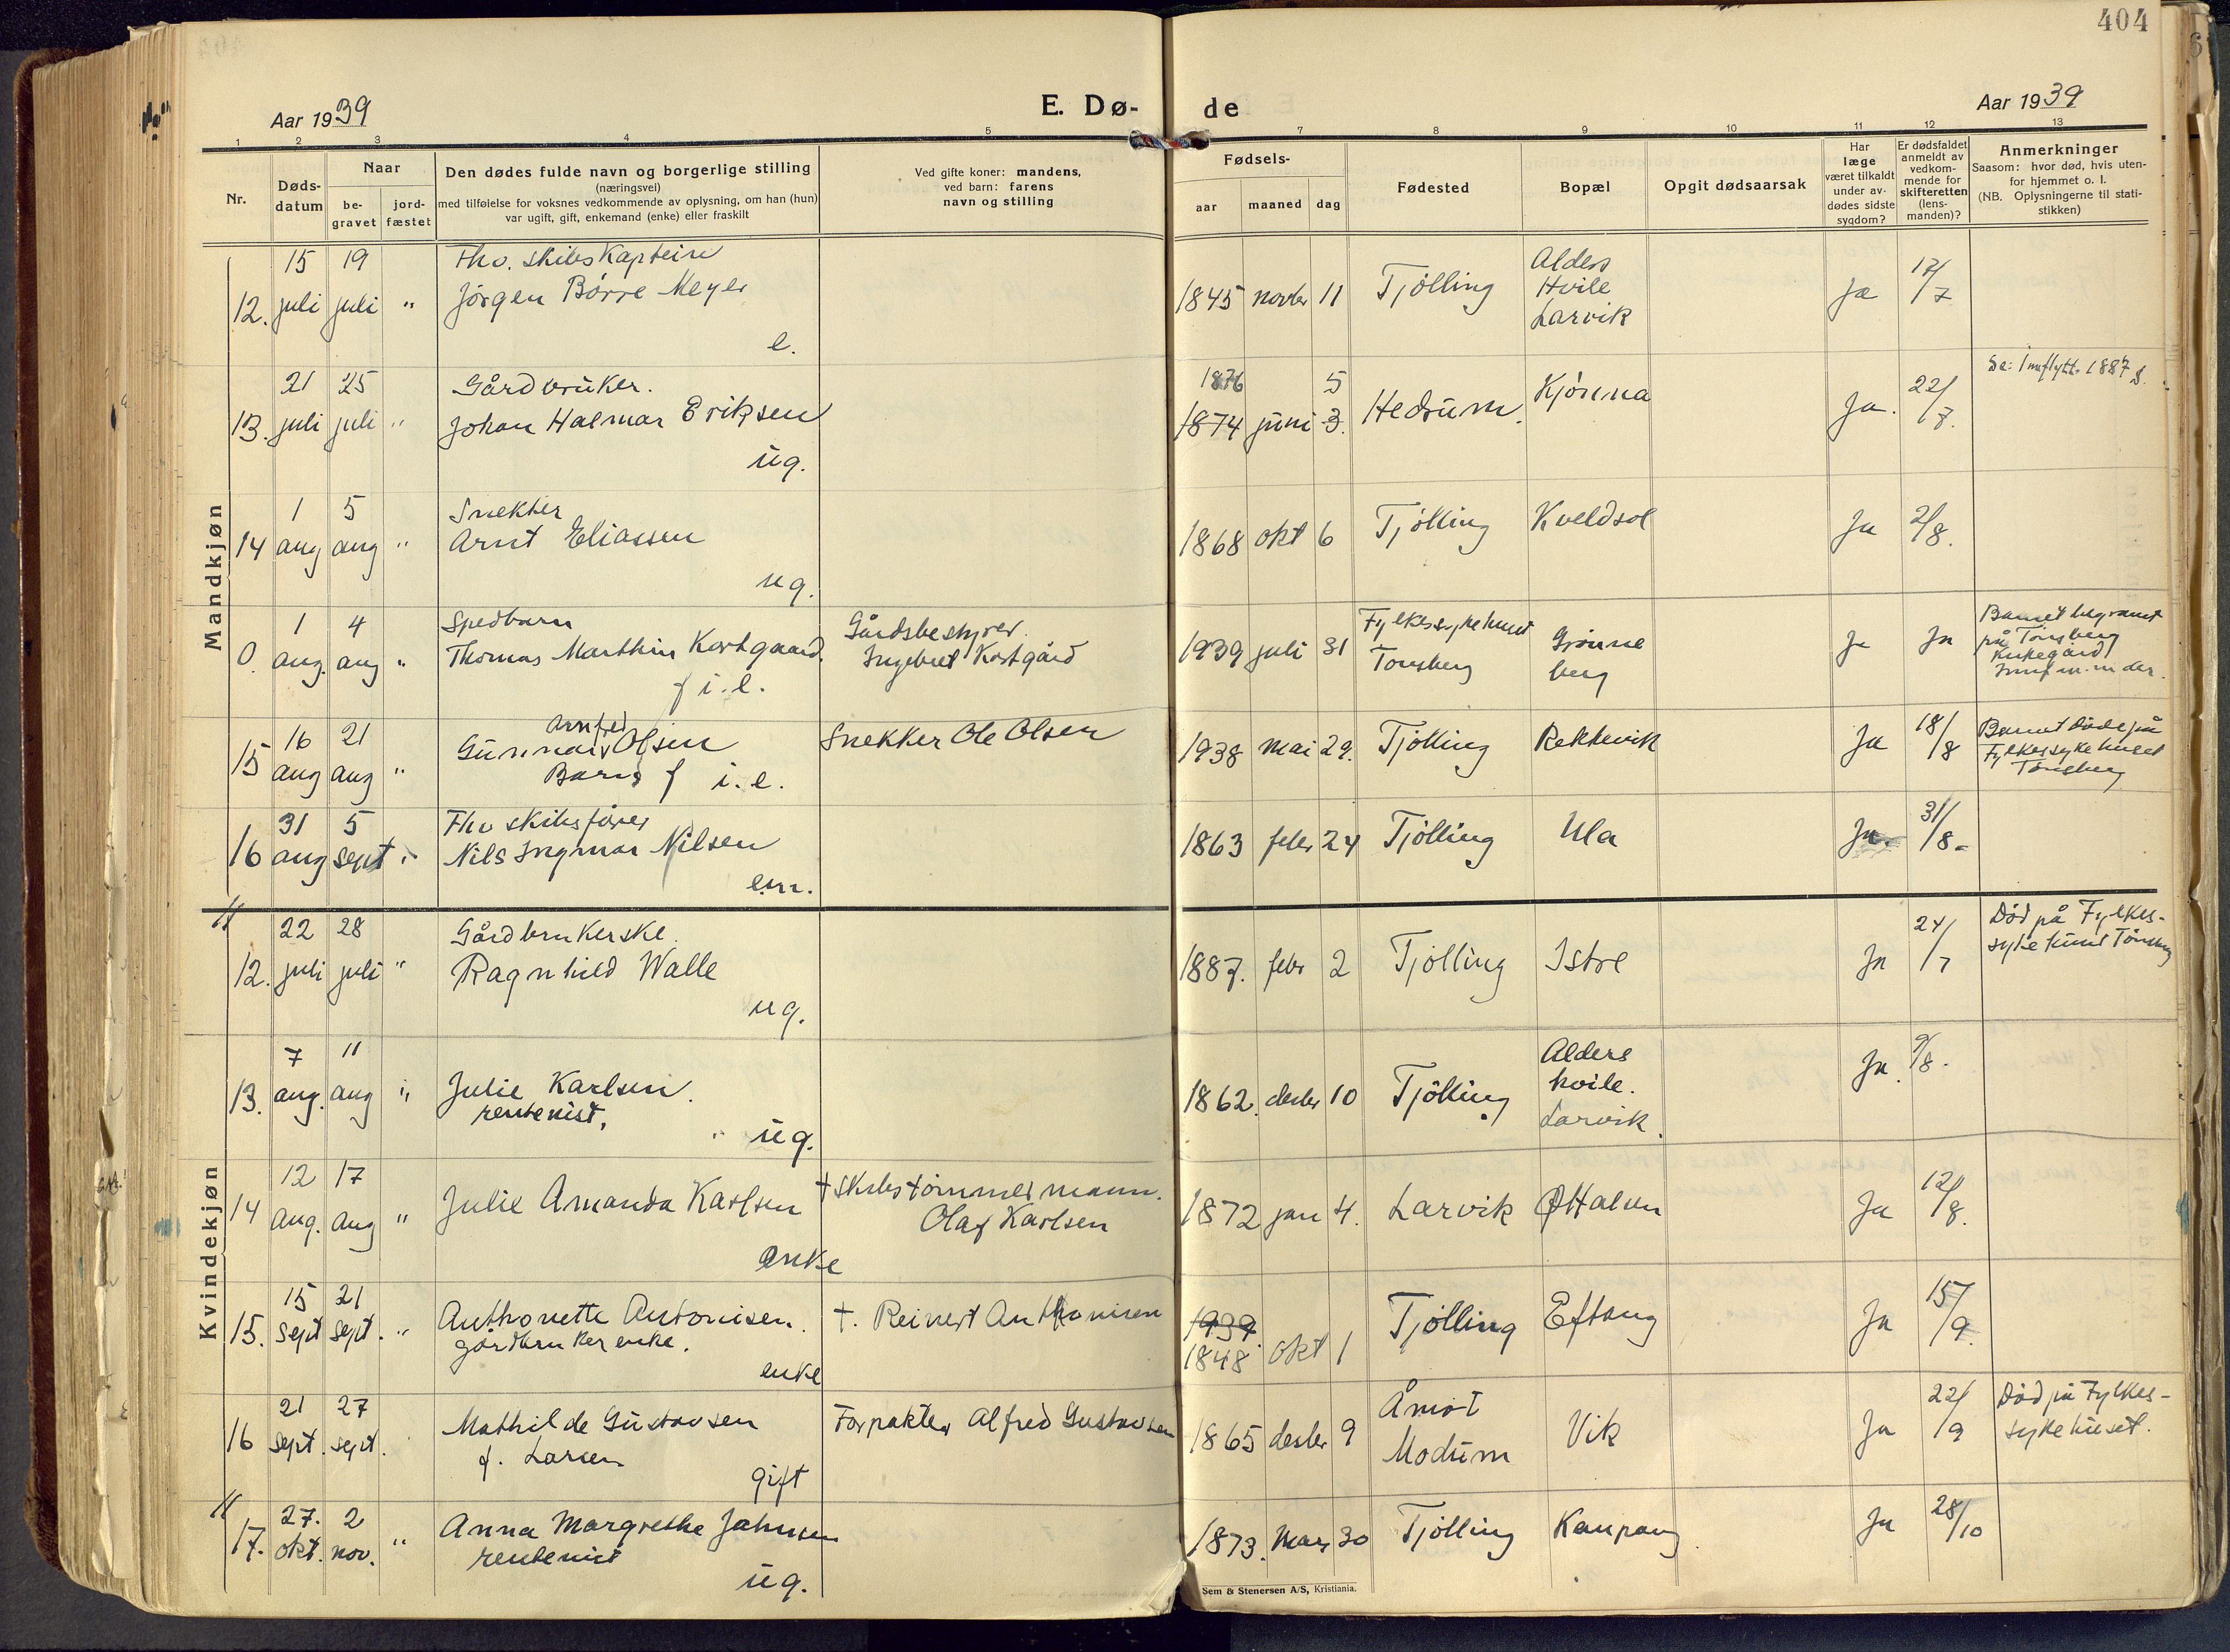 404
Aar 1939
E. Dø-
de
Aar 1939
1 2 3 4 5 7 8 9 10 11 12 13
Nr.
Døds-
datum
Naar
be-
gravet
jord-
fæstet
Den dødes fulde navn og borgerlige stilling
(næringsvei)
med tilføielse for voksnes vedkommende av oplysning, om han (hun)
var ugift, gift, enkemand (enke) eller fraskilt
Ved gifte koner: mandens,
ved barn: farens
navn og stilling
Fødsels-
aar maaned dag
Fødested
Bopæl
Opgit dødsaarsak
Har
læge
været tilkaldt
under av-
dødes sidste
sygdom?
Er dødsfaldet
anmeldt av
vedkom-
mende for
skifteretten
(lens-
manden)?
Anmerkninger
Saasom: hvor død, hvis uten-
for hjemmet o. l.
(NB. Oplysningerne til stati-
stikken)
Mandkjøn
15 19 Fhv. skibskaptein Alders
12. juli juli " Jörgen Börre Meyer 1845 novbr 11 Tjölling Hvile Ja 17/7
Larvik
e.
21 25 Gårdbruker. 1876 5 Se: Innflytt. 1887
13. juli juli " Johan Halmar Eriksen 1874 juni 3. Hedrum. Kjönna Ja. 22/7.
ug.
1 5 Snekker
14 aug aug " Arnt Eliassen 1868 okt 6 Tjölling Kveldsol Ja 2/8.
ug.
1 4 Spedbarn Gårdsbestyrer Fylkessykehuset Barnet begravet
0. aug. aug " Thomas Marthin Kortgaard. Ingebret Kortgård 1939 juli 31 Tönsberg Grönne Ja Ja på Tönsberg
f i. e. berg Kirkegård
16 21 Arnfred
15 aug aug " Gunnar Olsen Snekker Ole Olsen 1938 mai 29. Tjölling Rekkevik Ja 18/8 Barnet döde på
Barn f i. e. Fylkessykehuset
Tönsberg
31 5 Fhv skibsförer
16 aug sept " Nils Ingmar Nilsen 1863 febr 24 Tjölling Ula Ja. 31/8-
em.
Kvindekjøn
22 28 Gårdbrukerske. Död på Fylkes-
12. juli juli " Ragnhild Walle 1887. febr 2 Tjölling Istre Ja 24/7 sykehuset Tönsberg
ug.
7 11 Alders
13. aug. aug " Julie Karlsen. 1862. desbr 10 Tjölling hvile. Ja. 9/8.
rentenist. Larvik.
ug.
12 17 † Skibstömmermann.
14 aug. aug " Julie Amanda Karlsen Olaf Karlsen 1872 jan 4. Larvik Ja 12/8.
enke
15 21 1939
15. sept sept. " Anthonette Antonisen. †. Reinert Anthonisen 1848 okt 1 Tjölling Eftang Ja 15/9.
gårdbrukerenke.
enke
21 27 Åmot Död på Fylkes-
16 sept. sept. Mathilde Gustavsen Forpakter Alfred Gustavsen 1865 desbr 9 Modum Vik Ja 22/9 sykehuset.
f. Larsen
gift
27. 2
17. okt. nov. " Anna Margrethe Jahnsen 1873. Mars 30 Tjölling Kaupang. Ja 28/10
rentenist
ug.
Sem & Stenersen A/S, Kristiania.